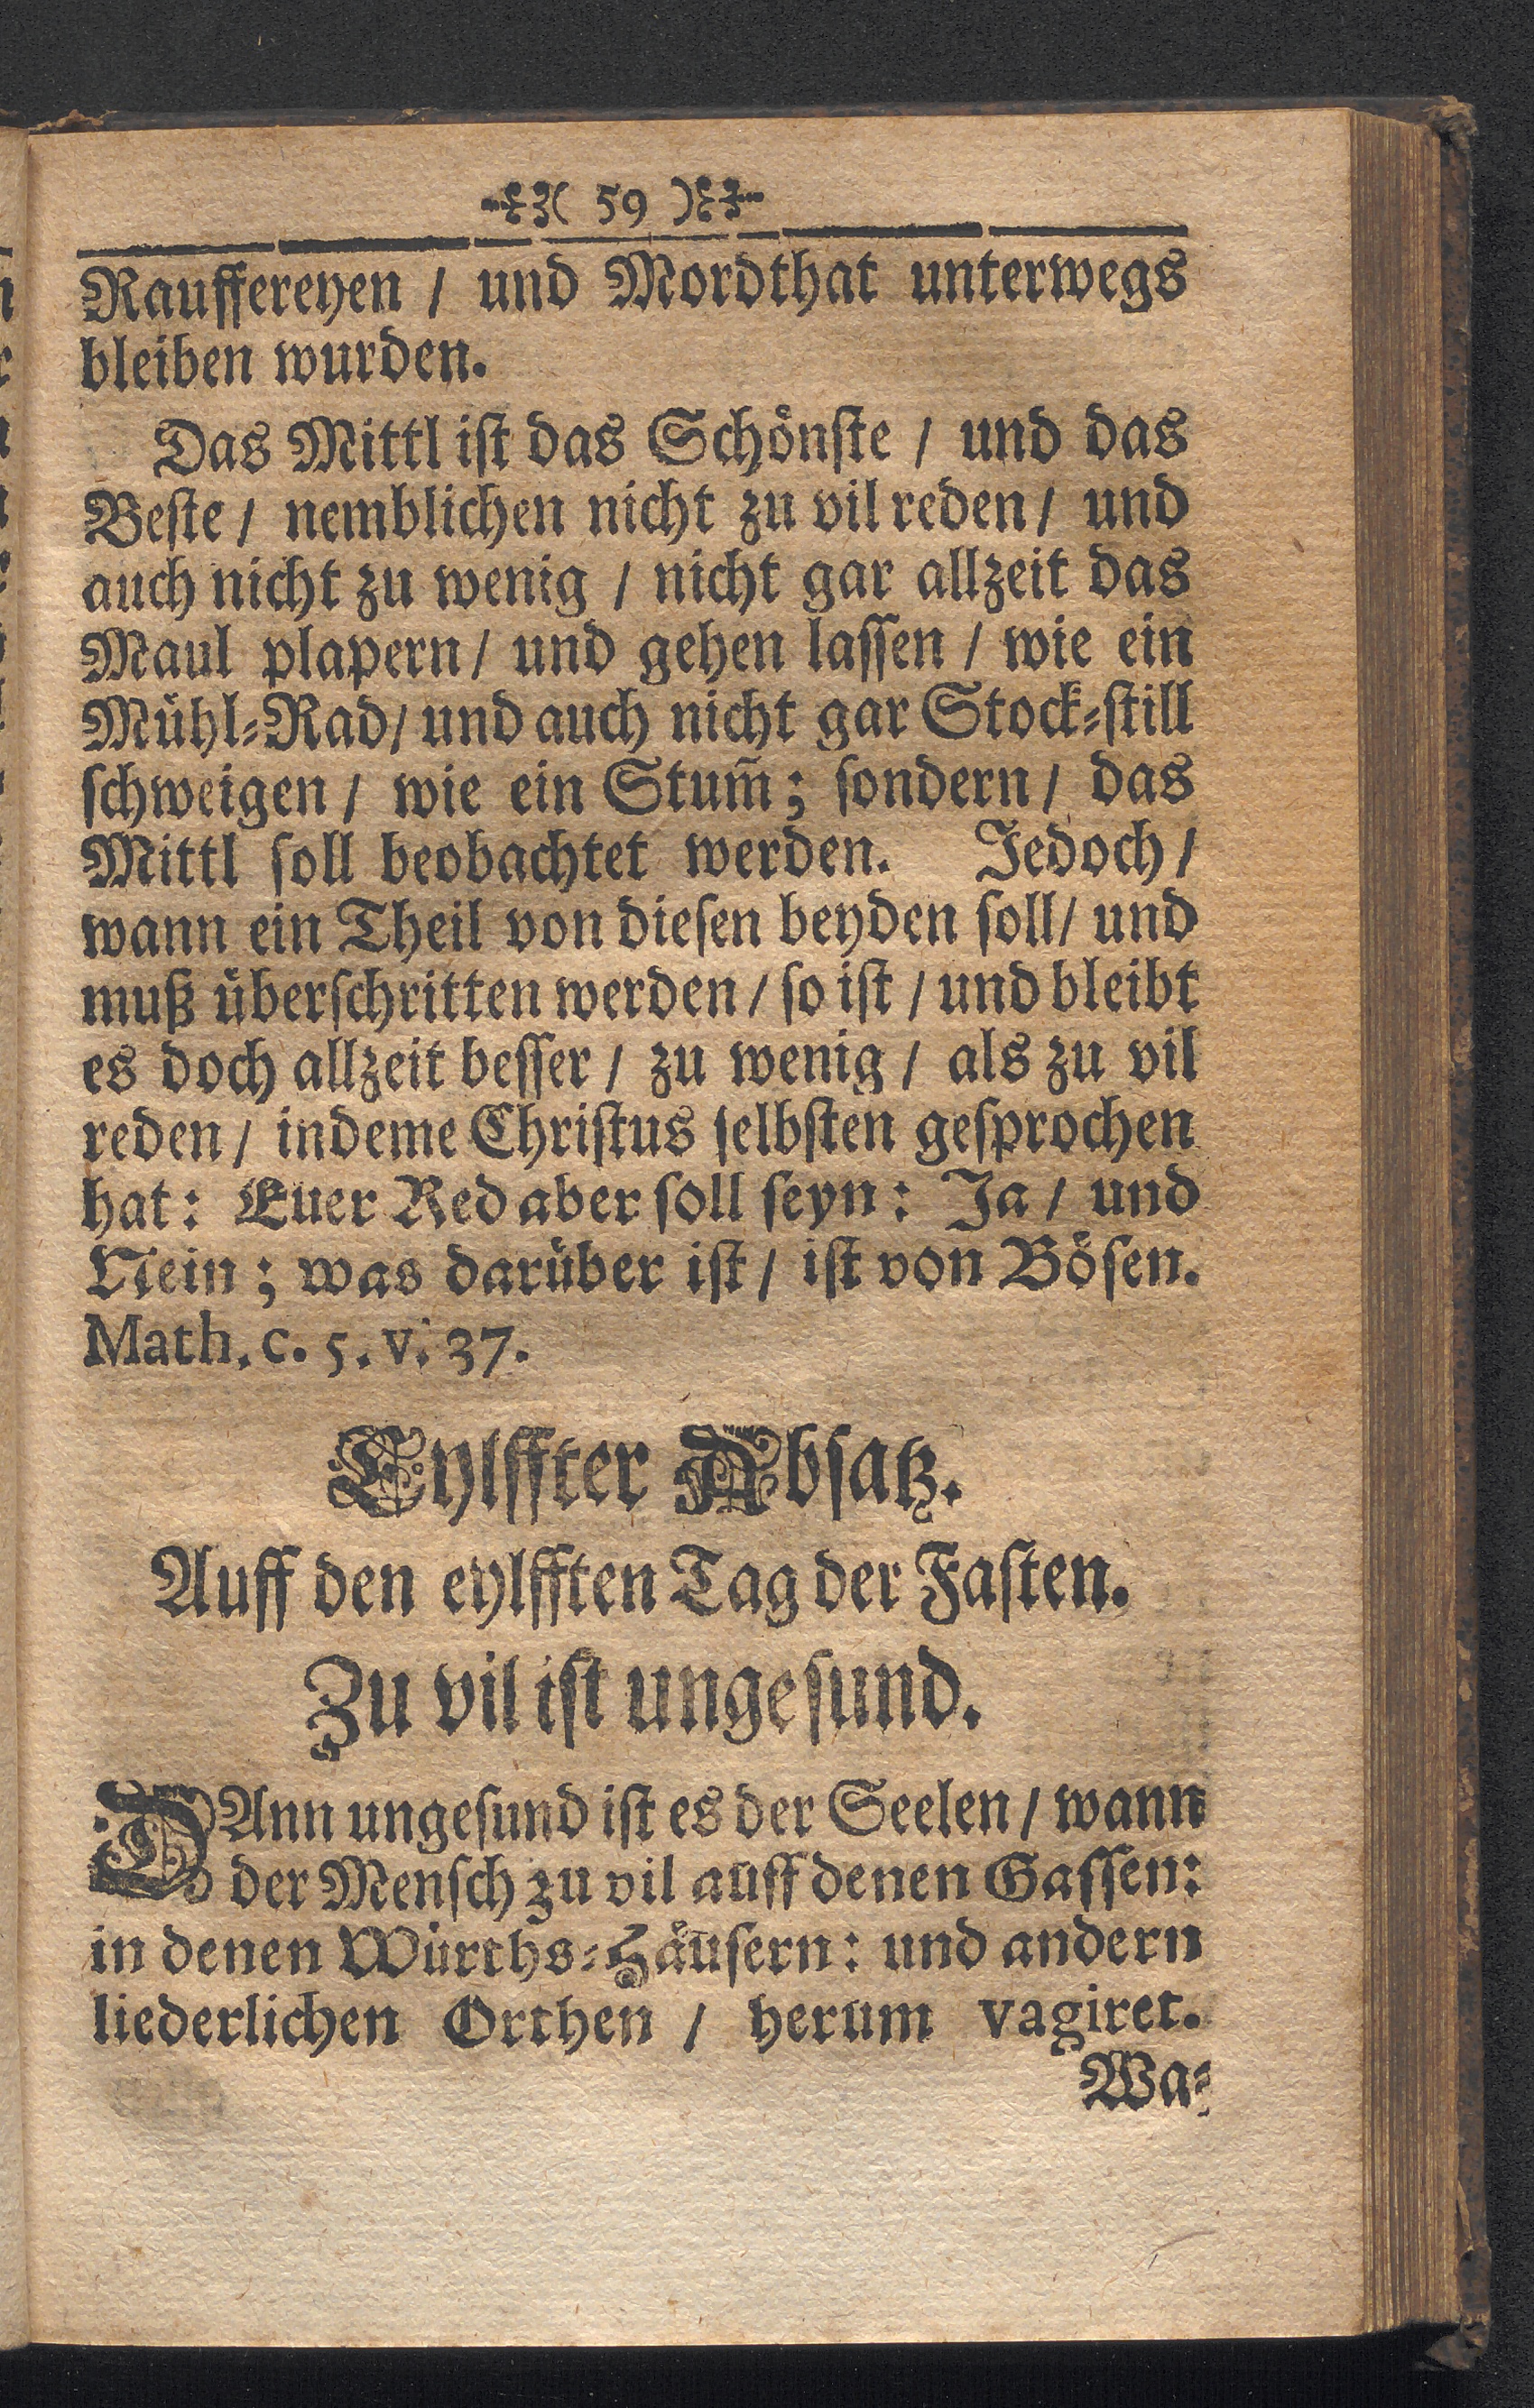 ( 59 )
Rauffereyen / und Mordthat unterwegs
bleiben wurden.
Das Mittl iſt das Schoͤnſte / und das
Beſte / nemblichen nicht zu vil reden / und
auch nicht zu wenig / nicht gar allzeit das
Maul plapern / und gehen laſſen / wie ein
Muͤhl⸗Rad / und auch nicht gar Stock⸗ſtill
ſchweigen / wie ein Stum̃; ſondern / das
Mittl ſoll beobachtet werden. Jedoch /
wann ein Theil von dieſen beyden ſoll / und
muß uͤberſchritten werden / ſo iſt / und bleibt
es doch allzeit beſſer / zu wenig / als zu vil
reden / indeme Chriſtus ſelbſten geſprochen
hat: Euer Red aber ſoll ſeyn: Ja / und
Nein; was daruͤber iſt / iſt von Boͤſen.
Math. c. 5. v. 37.
Eylffter Abſatz.
Auff den eylfften Tag der Faſten.
Zu vil iſt ungeſund.
DAnn ungeſund iſt es der Seelen / wann
der Menſch zu vil auff denen Gaſſen:
in denen Wuͤrths⸗Haͤuſern: und andern
liederlichen Orthen / herum vagiret.
Wa⸗